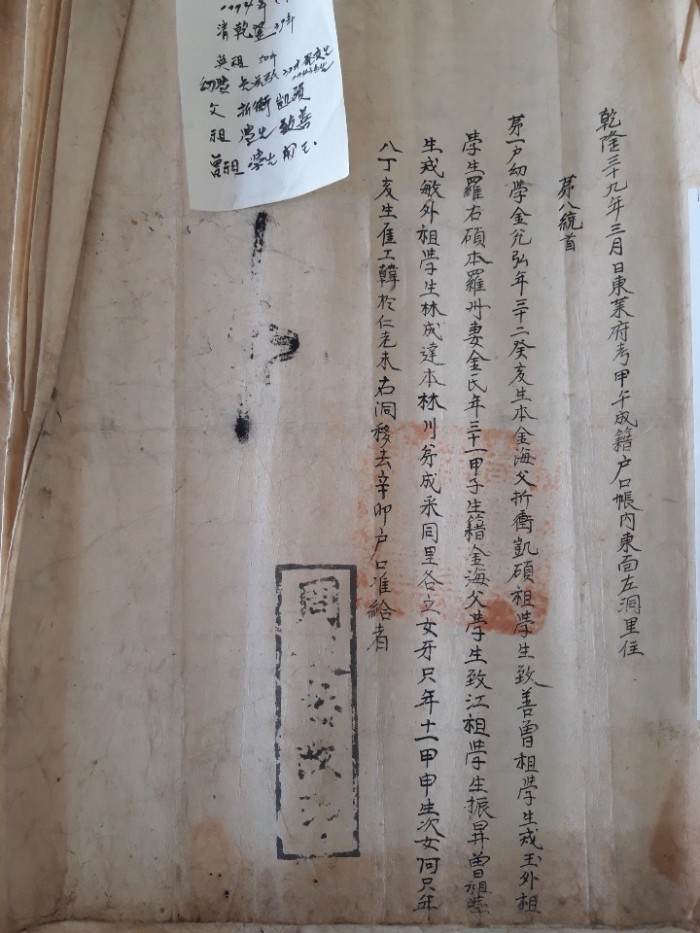 乾隆三十九年三月日東萊府考甲午成籍户口帳內東面左洞里住
第八統首
第一户幼學金允弘年三十二癸亥生本金海父折衝凱碩祖學生致善曾祖學生戎玉外祖
學生羅右碩本羅州妻金氏年三十一甲子生籍金海父學生致江祖學生振昇曾祖學
生戎敏外祖學生林成達本林川弟成采同里各立女牙只年十一甲申生次女何只年
八丁亥生雇工韓於仁老未右洞移去辛卯户口准給者
周 挾 改
清 乾隆 39年
幼學
父 折衝 凱碩
祖 學生 致善
曾祖 學生